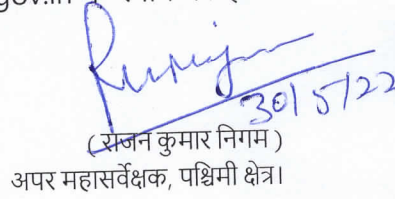 gov.in
30/5/22
( राजन कुमार निगम )
अपर महासर्वेक्षक, पश्चिमी क्षेत्र।